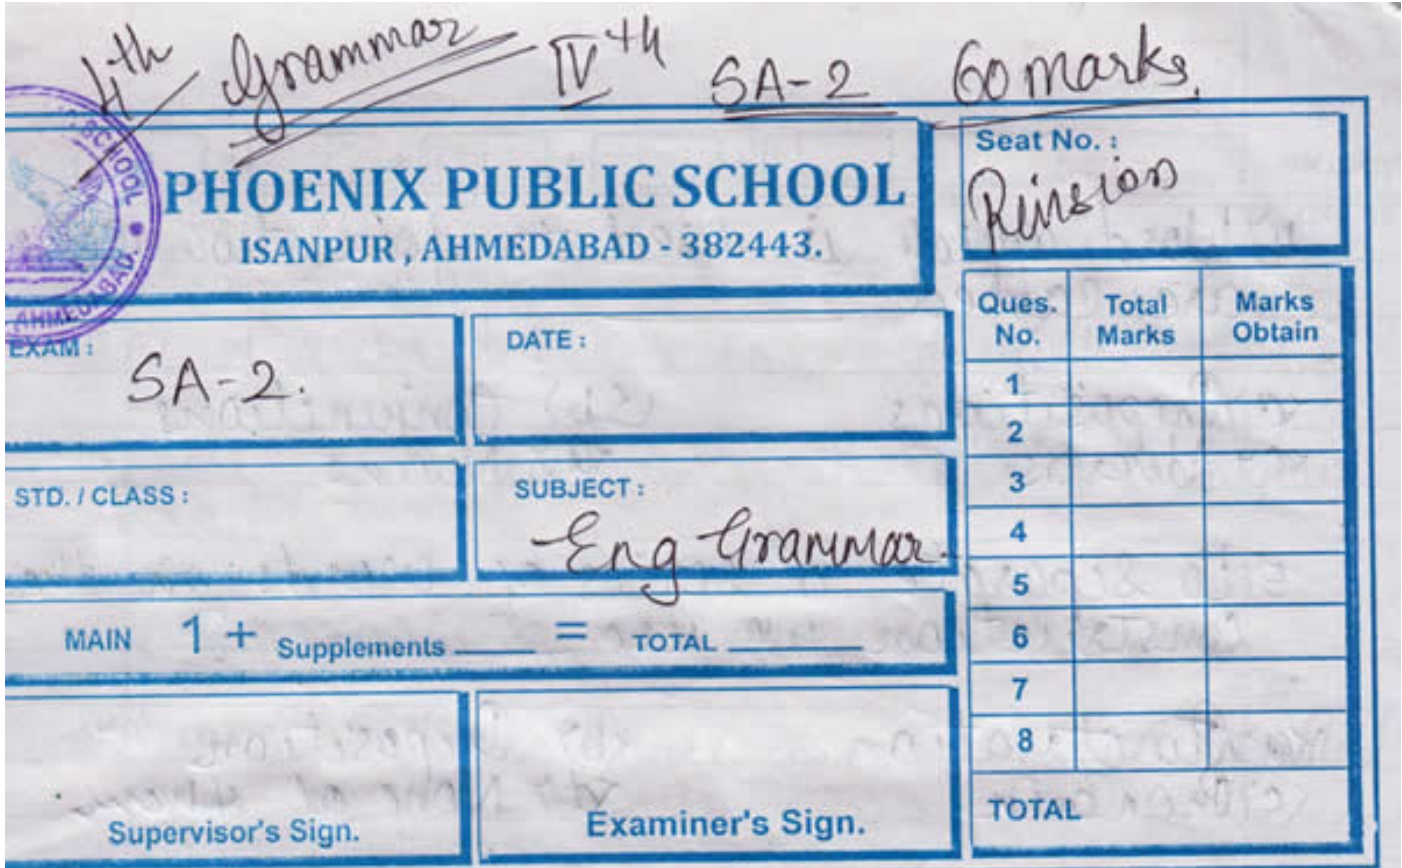 4th Grammar IVth SA-2 60 marks.
SCHOOL
AHMEDABAD.
PHOENIX PUBLIC SCHOOL
ISANPUR , AHMEDABAD - 382443.
Seat No. :
Reivsion
EXAM :
SA-2.
DATE :
STD. / CLASS :
SUBJECT :
Eng Grammar
MAIN 1 + Supplements ____ = TOTAL ____
Supervisor's Sign.
Examiner's Sign.
Ques. No. Total Marks Marks Obtain
1
2
3
4
5
6
7
8
TOTAL